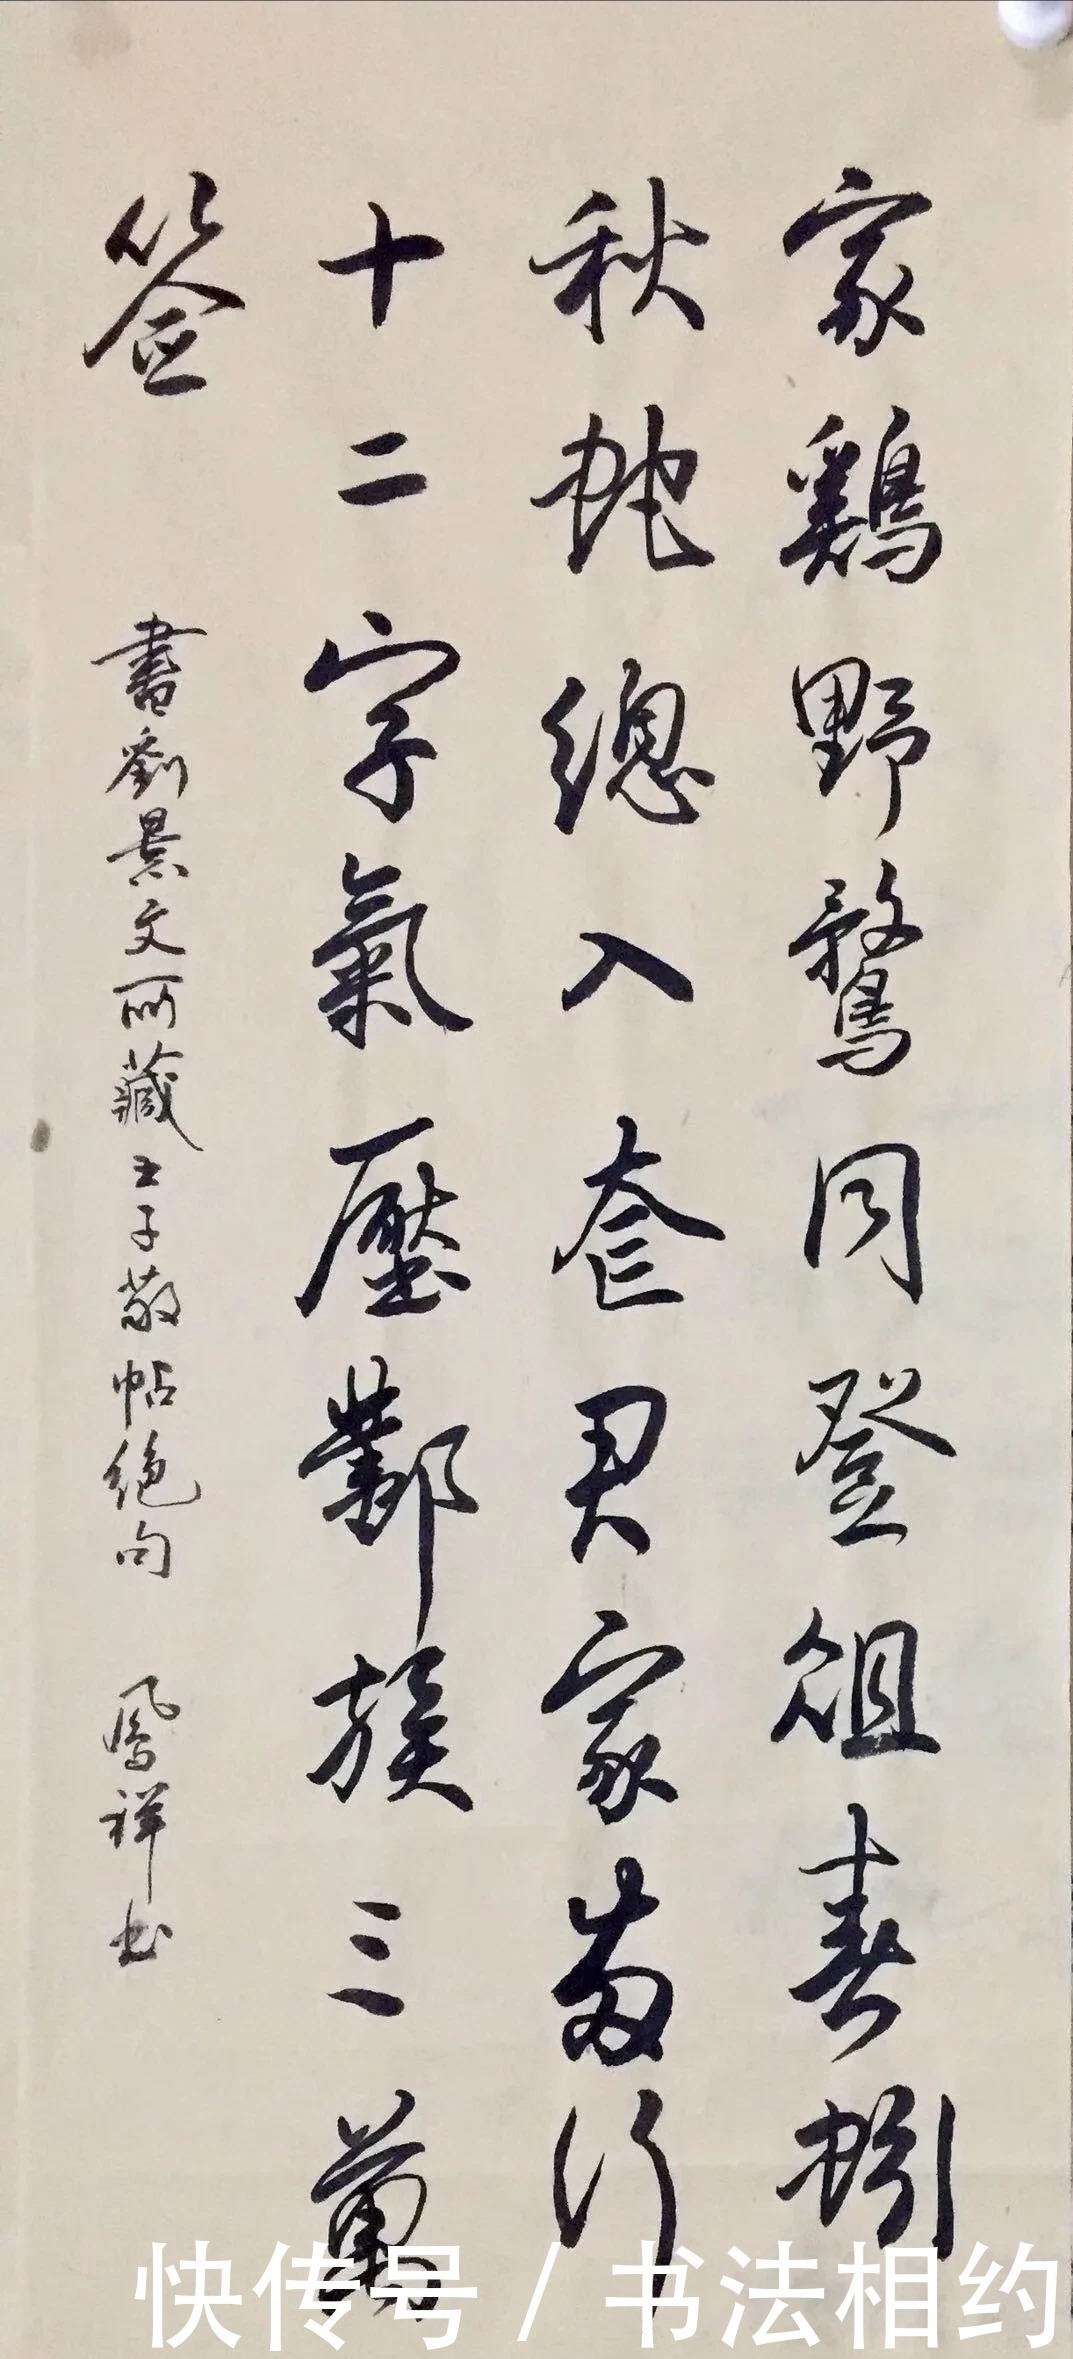 家鷄野鶩同登俎春蚓
秋蛇總入奩君家兩行
十二字氣壓鄴侯三萬
签
書劉景文所藏王子敬帖絶句
鳳祥书
快传号/书法相约